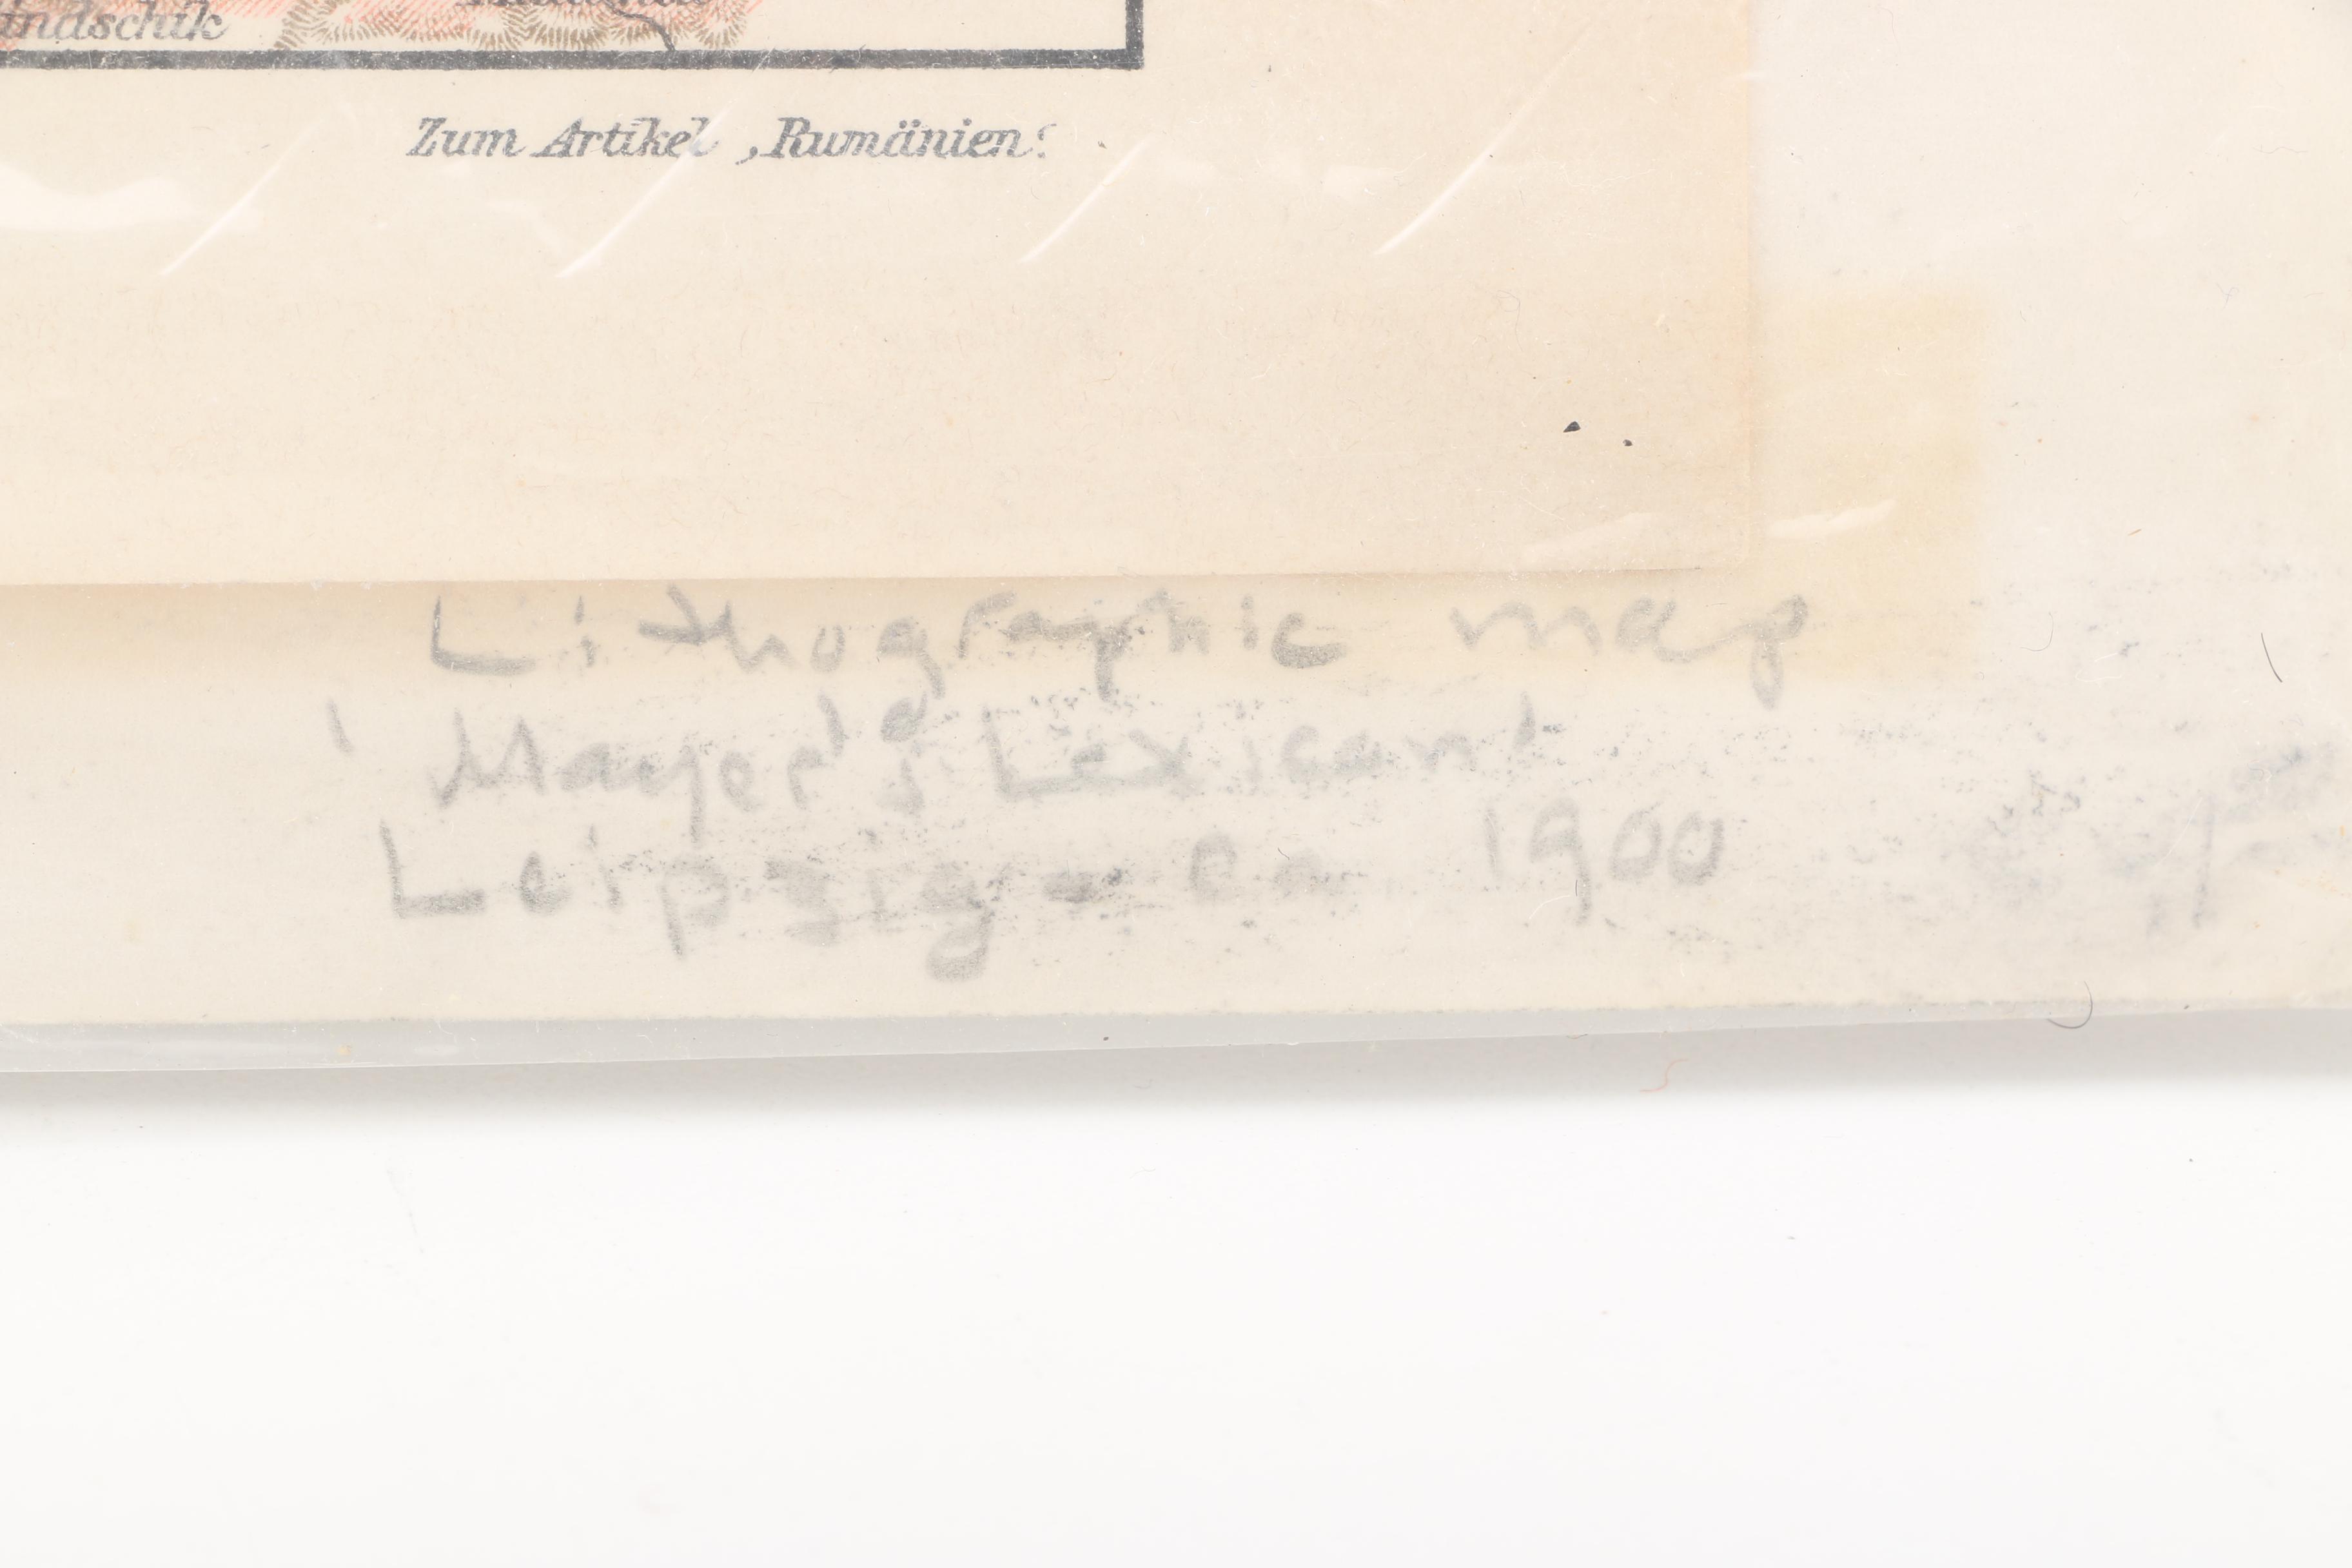 indschik
Zum Artikel ‚Rumänien‘.
Lithographic map
'Mayer's Lexicon'
Leipzig - Ca 1900